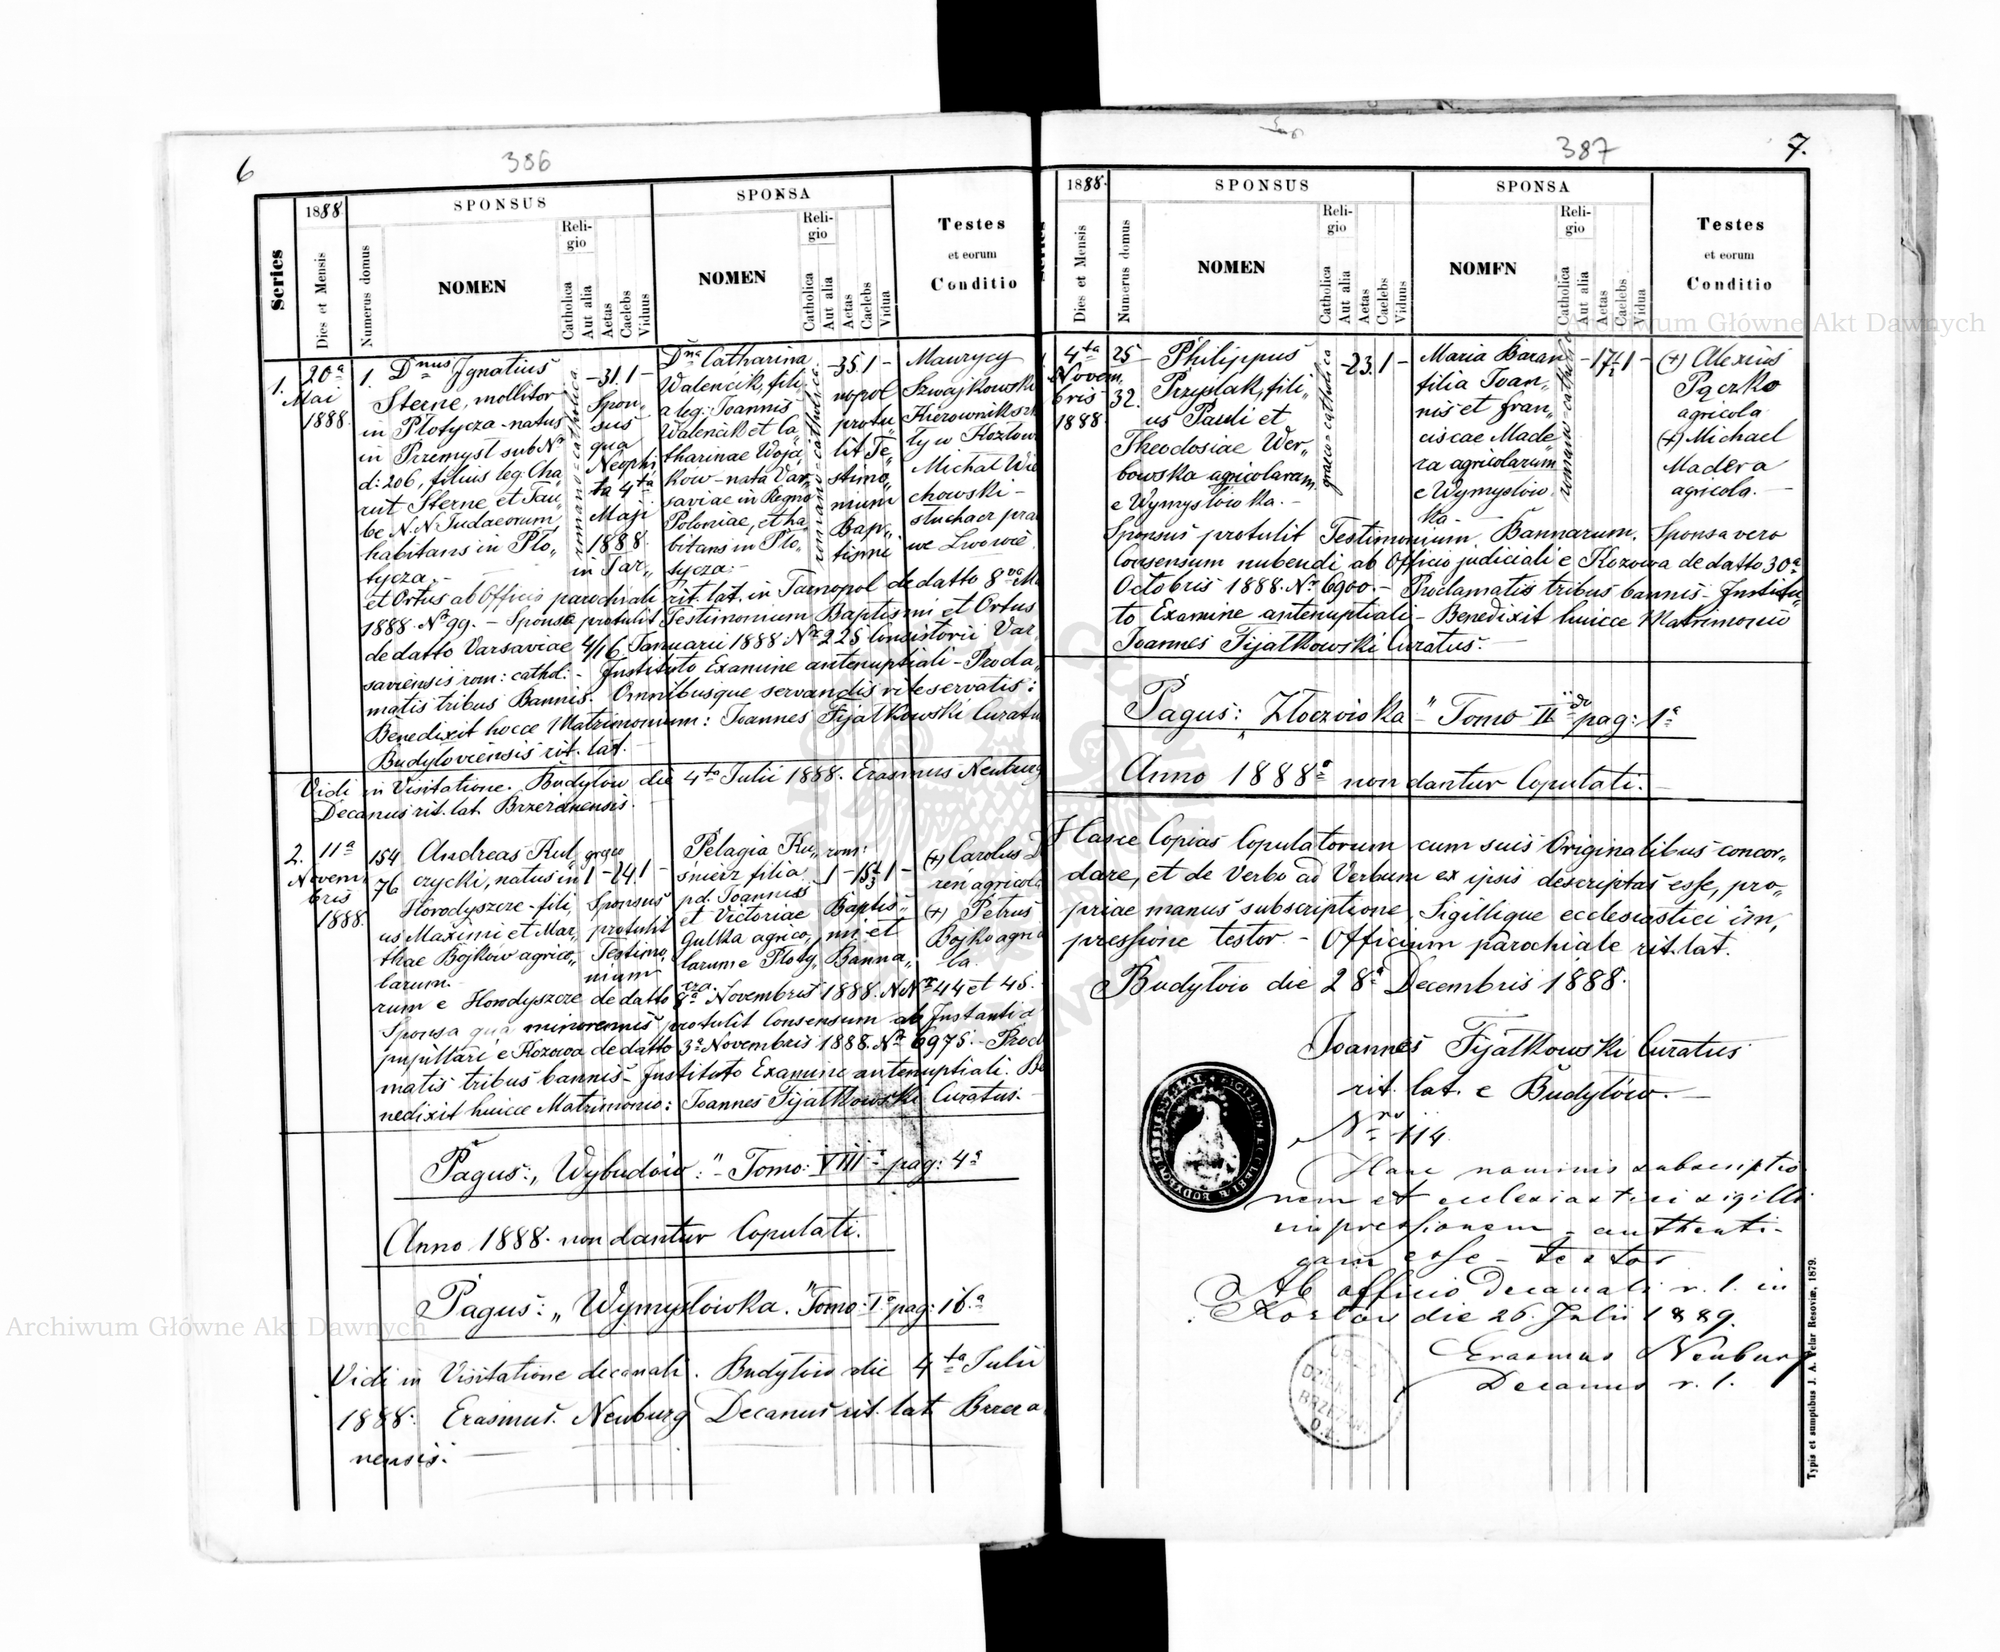 6
386
Series
1888.
Dies et Mensis
Numerus domus
SPONSUS
NOMEN
Reli-
gio
Catholica
Aut alia
Aetas
Caelebs
Viduus
SPONSA
NOMEN
Reli-
gio
Catholica
Aut alia
Aetas
Caelebs
Vidua
Testes
et eorum
Conditio
1.
20a
Mai
1888
1.
Dnus Ignatius
Sterne, mollitor
in Plotycza - natus
in Przemyst sub No
d: 206, filius leg: Cha„
rut Sterne et Tau„
be N. N. Judaeorum,
habitans in Plo„
tycza. -
romano-catholica
- 31. 1 -
Spon„
sus
qua
Neophi„
ta 4ta
Maji
1888.
in Tar„
Dna Catharina
Walencik, fili„
a leg: Joannis
Walencik et Ca„
tharinae Woja„
ków - nata Var„
saviae in Regno
Poloniae, et ha„
bitans in Plo„
tycza. -
romano-catholica
- 35. 1 -
nopol
protu„
lit Te„
stimo„
nium
Bap„
tismi
Maurycy
Szwajkowski
Kierownik
ty w Kozłow
Michał Wie
chowski -
słuchacz pra
we Lwowie
et Ortus ab Officio parochiali rit. lat. in Tarnopol de datto 8va M
1888. No 99. - Sponsa protulit Testimonium Baptismi et Ortus
de datto Varsaviae 4/16. Januarii 1888. No 225 Consistorii Var„
saviensis rom: cathol: - Instituto Examine antenuptiali - Procla„
matis tribus Bannis. Omnibusque servandis rite servatis:
Benedixit hocce Matrimonium: Joannes Fijałkowski Curatu
Budyloviensis rit. lat. -
Vidi in Visitatione. Budyłów die 4ta Julii 1888. Erasmus Neuburg
Decanus rit. lat. Brzezanensis.
2.
11a
Novem„
bris
1888.
154
76
Andreas Kul„
czycki, natus in
Horodyszcze - fili„
us Maximi et Mar„
thae Bojków agrico„
larum.
greco
1 - 24. 1 -
Sponsus
protulit
Testimo„
nium
Pelagia Ku„
śnierz filia
pd. Joannis
et Victoriae
Gulka agrico„
larum e Ploty„
cza.
rom:
1 - 15 1 -
Baptis„
mi et
Banna„
(+) Carolus
ren agricola
(+) Petrus
Bojko agrico
la.
rum e Horodyszcze de datto 9a Novembris 1888. NNo 44 et 45.
Sponsa qua minorennis protulit Consensum ab Instantia
pupillari e Kozowa de datto 3a Novembris 1888. No 6975. - Procl
matis tribus bannis - Instituto Examine antenuptiali. Be
nedixit huicce Matrimonio: Joannes Fijałkowski Curatus. -
Pagus: „Wybudów:" - Tomo: VIII - pag: 4a
Anno 1888. non dantur Copulati.
Pagus: „Wymysłówka." Tomo: I. pag: 16.a
Vidi in Visitatione decanali. Budyłów die 4ta Julii
1888. Erasmus Neuburg Decanus rit. lat. Brzeza
nensis. -
387
7.
Series
1888.
Dies et Mensis
Numerus domus
SPONSUS
NOMEN
Reli-
gio
Catholica
Aut alia
Aetas
Caelebs
Viduus
SPONSA
NOMEN
Reli-
gio
Catholica
Aut alia
Aetas
Caelebs
Vidua
Testes
et eorum
Conditio
4ta
Novem„
bris
1888
25
32.
Philippus
Przyslak, fili„
us Pauli et
Theodosiae Wer„
bowska agricolarum
e Wymysłówka. -
graeco-catholica
- 23. 1 -
Maria Baran
filia Joan„
nis et Fran„
ciscae Made„
ra agricolarum
e Wymysłów„
ka. -
romano-catholica
- 17 1 -
(+) Alexius
Pączko
agricola
(+) Michael
Madera
agricola. -
Sponsus protulit Testimonium Bannarum. Sponsa vero
Consensum nubendi ab Officio judiciali e Kozowa de datto 30a
Octobris 1888. No 6900. - Proclamatis tribus bannis - Institu„
to Examine antenuptiali - Benedixit huicce Matrimonio
Joannes Fijałkowski Curatus. -
Pagus: Złoczówka - " Tomo II do pag: 1a
Anno 1888o non dantur Copulati. -
Hasce Copias Copulatorum cum suis Originalibus concor„
dare, et de Verbo ad Verbum ex ipsis descriptas esse, pro„
priae manus subscriptione, Sigillique ecclesiastici im„
pressione testor. - Officium parochiale rit. lat.
Budyłów die 28a Decembris 1888.
Joannes Fijałkowski Curatus
rit. lat. e Budyłów. -
Nro 114.
Hanc nominis subscriptio
nem et ecclesiastici sigilli
impressionem - authenti-
cam esse - testor
Ab officio Decanali r. l. in
Kozłów die 26. Julii 1889.
Erasmus Neuburg
Decanus r. l.
Typis et sumptibus J. A. Pelar Resoviæ, 1879.
Archiwum Główne Akt Dawnych
Archiwum Główne Akt Dawnych